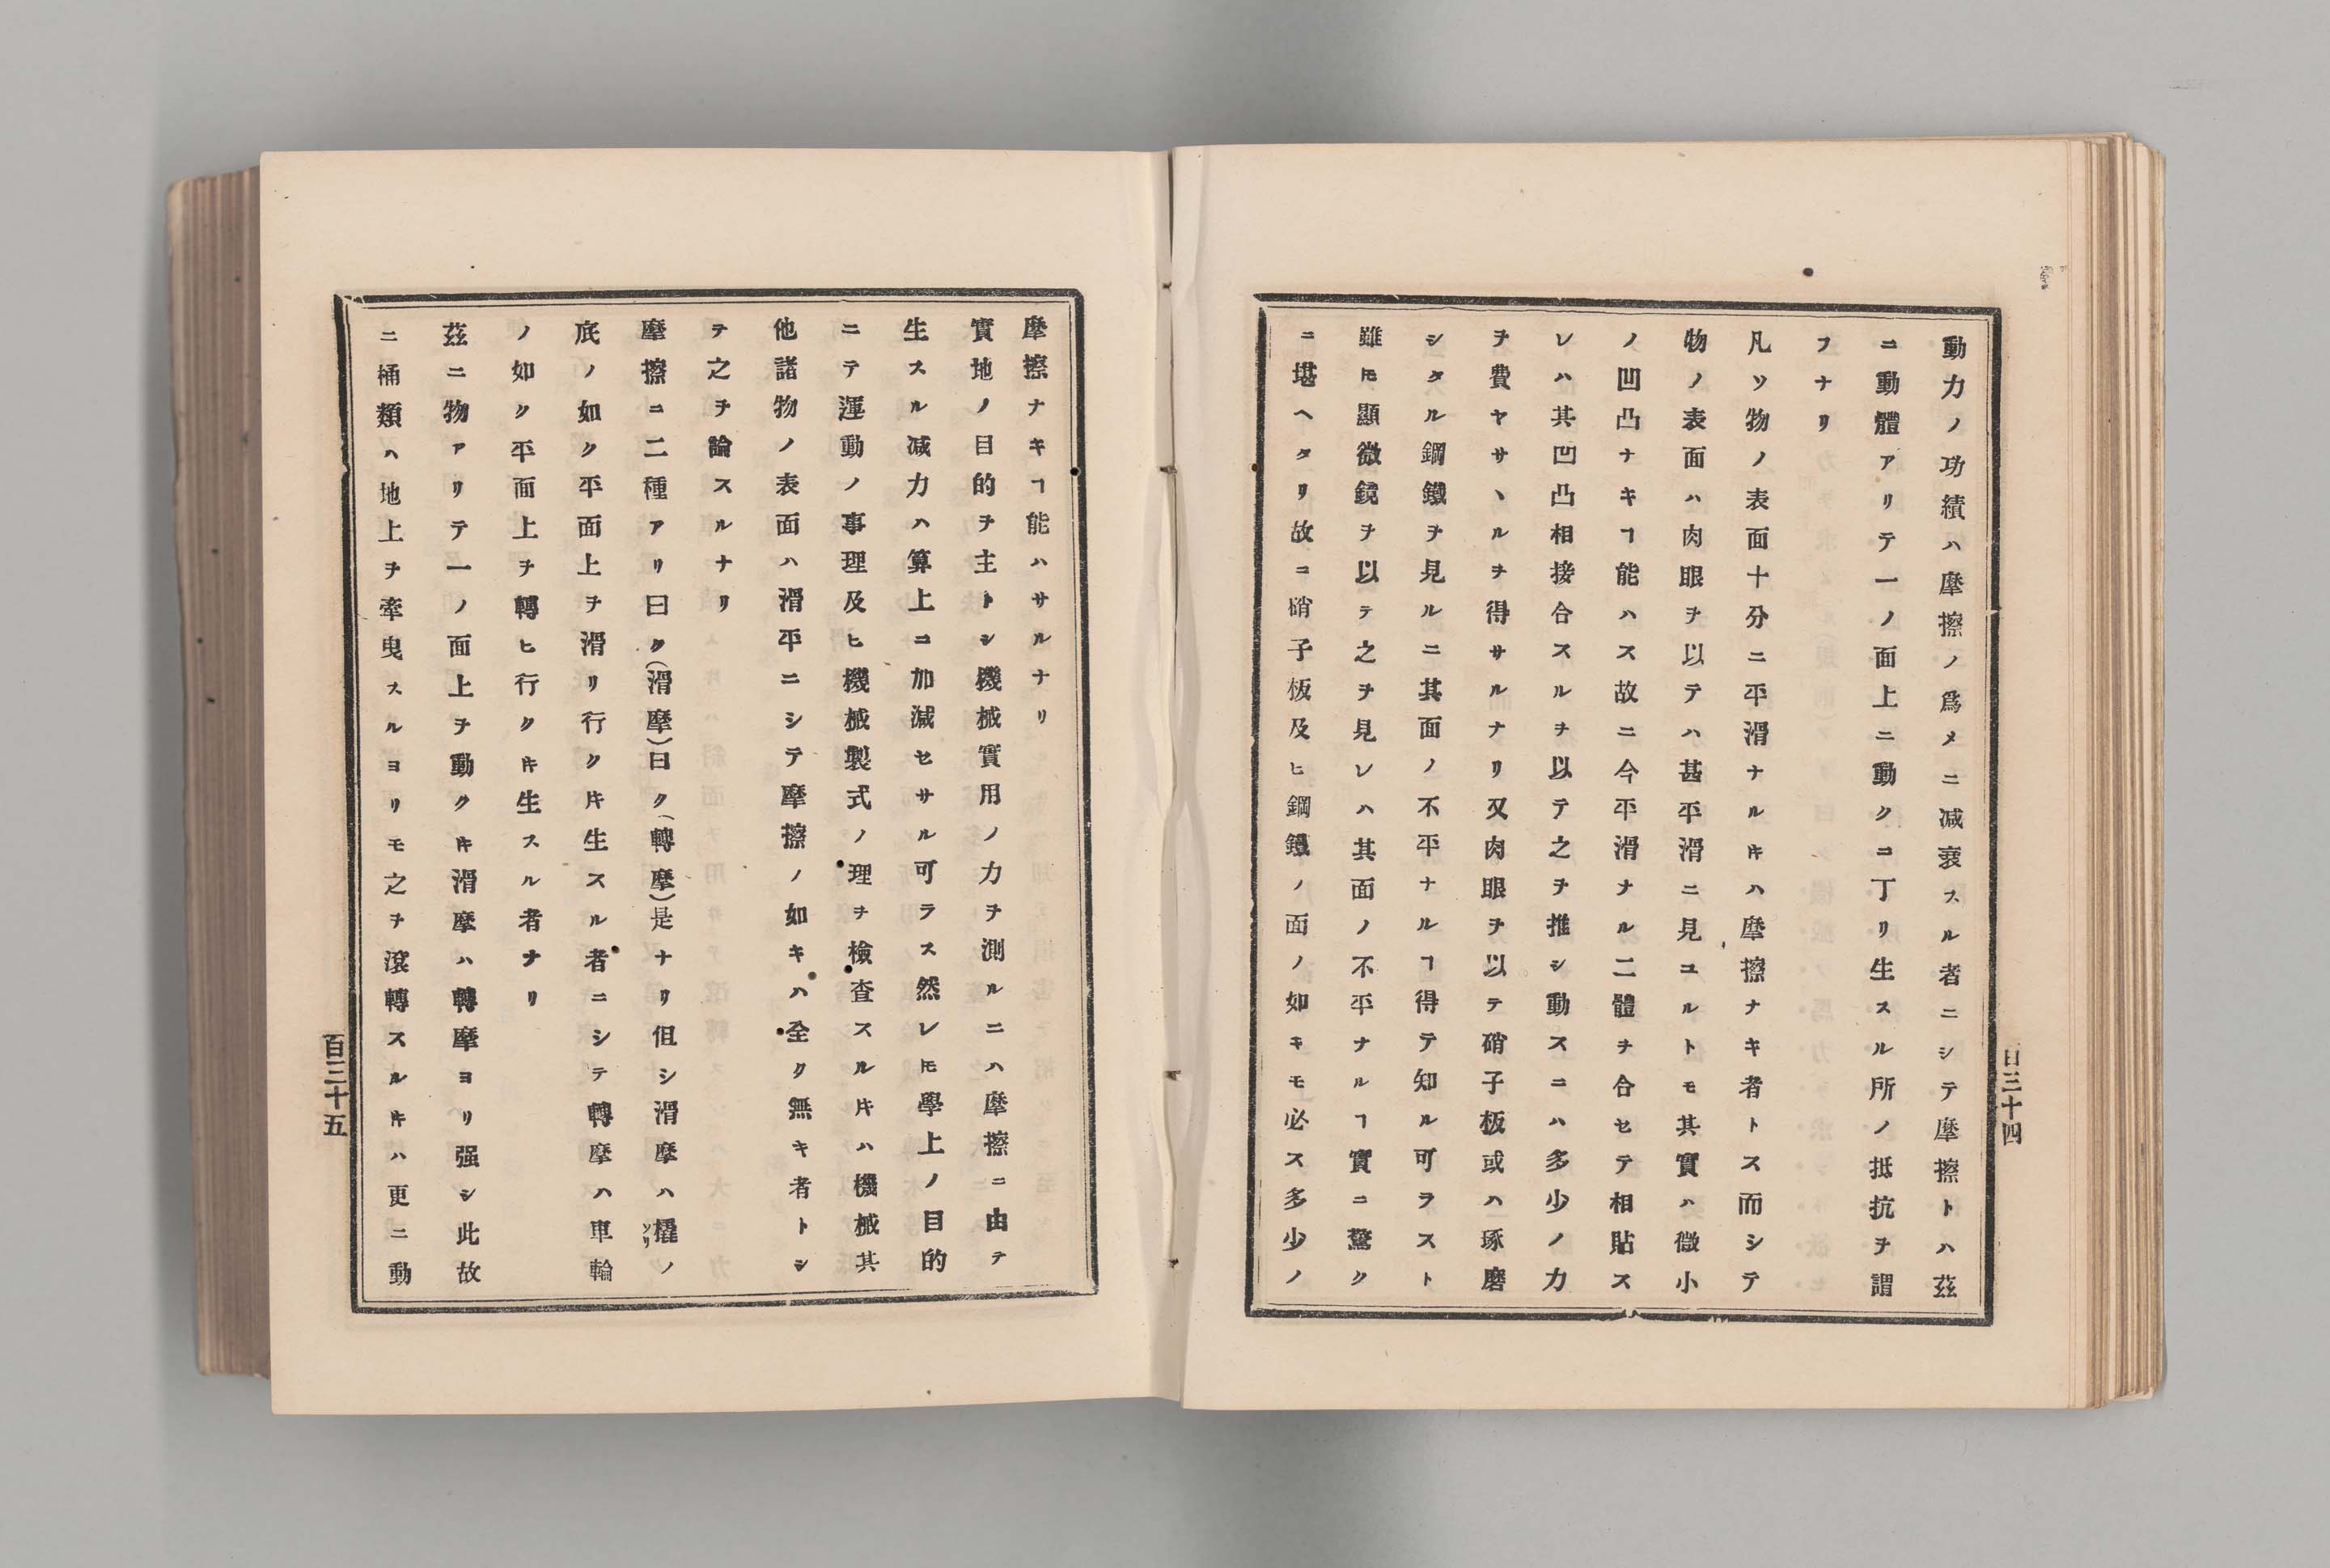 動力ノ功績ハ摩擦ノ爲メニ减衰スル者ニシテ摩擦トハ茲
ニ動體アリテ一ノ面上ニ動クヿ丁リ生スル所ノ抵抗ヲ謂
フナリ
凡ソ物ノ表面十分ニ平滑ナルキハ摩擦ナキ者トス而シテ
物ノ表面ハ肉眼ヲ以テハ甚平滑ニ見ユルトモ其實ハ微小
ノ凹凸ナキヿ能ハス故ニ今平滑ナル二體ヲ合セテ相貼ス
レハ其凹凸相接合スルヲ以テ之ヲ推シ動スニハ多少ノ力
ヲ費ヤサヽルヲ得サルナリ又肉眼ヲ以テ硝子板或ハ琢磨
シタル鋼鐵ヲ見ルニ其面ノ不平ナルヿ得テ知ル可ラスト
雖𪜈顯微鏡ヲ以テ之ヲ見レハ其面ノ不平ナルヿ實ニ驚ク
ニ堪ヘタリ故ニ硝子板及ヒ鋼鐵ノ面ノ如キモ必ス多少ノ
百三十四
摩擦ナキヿ能ハサルナリ
實地ノ目的ヲ主トシ機械實用ノ力ヲ測ルニハ摩擦ニ由テ
生スル减力ハ算上ニ加减セサル可ラス然レ𪜈學上ノ目的
ニテ運動ノ事理及ヒ機械製式ノ理ヲ檢査スルキハ機械其
他諸物ノ表面ハ滑平ニシテ摩擦ノ如キハ全ク無キ者トシ
テ之ヲ論スルナリ
摩擦ニ二種アリ曰ク(滑摩)曰ク(轉摩)是ナリ但シ滑摩ハ橇ソリノ
底ノ如ク平面上ヲ滑リ行クキ生スル者ニシテ轉摩ハ車輪
ノ如ク平面上ヲ轉ヒ行クキ生スル者ナリ
茲ニ物アリテ一ノ面上ヲ動クキ滑摩ハ轉摩ヨリ强シ此故
ニ桶類ハ地上ヲ牽曳スルヨリモ之ヲ滾轉スルキハ更ニ動
百三十五